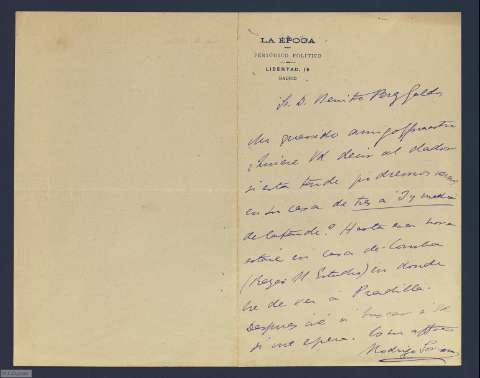 LA ÉPOCA
PERIÓDICO POLÍTICO
LIBERTAD, 18
MADRID
Sr. D. Benito Perez Galdós
Mi querido amigo y maestro
¿Quiere Vd decir al dador
si esta tarde podremos vernos
en su casa de tres a 3 y media
de la tarde? Hasta esa hora
estaré en casa de Comba
(Reyes Estudio) en donde
he de ver a Pradilla.
Despues iré a buscar a Vd
si me espera. Su affmo
Rodrigo Soriano